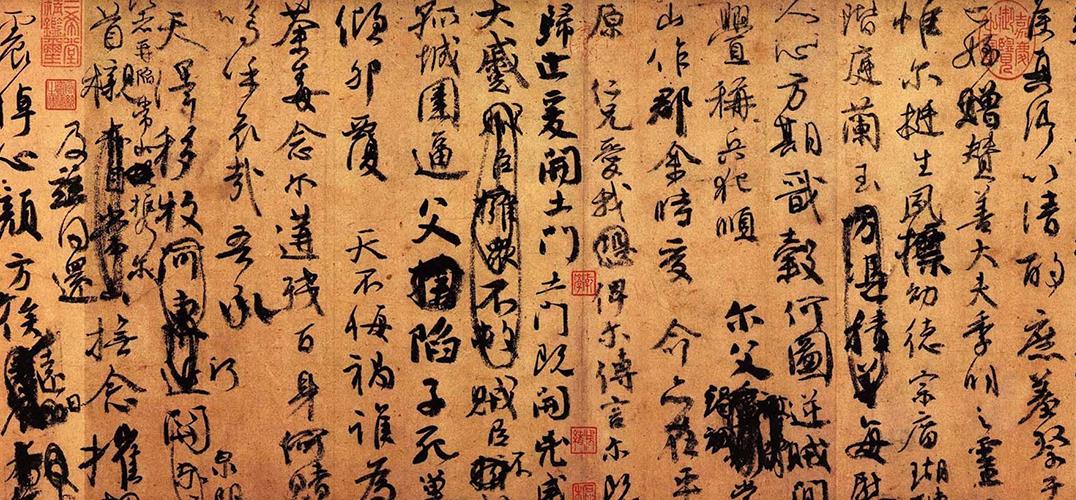 侯真卿以清酌庶羞祭于
亡姪贈贊善大夫季明之靈
惟爾挺生夙標幼德宗廟瑚
階庭蘭玉方憑積善每慰
人心方期戩穀何圖逆賊間
釁稱兵犯順爾父竭誠常
山作郡余時受命亦在平
原仁兄愛我恐俾爾傳言爾既
歸止爰開土門土門既開凶威
大蹙賊臣擁眾不救賊臣不擁
孤城圍逼父擒陷子死巢
傾卵覆天不悔禍誰為
荼毒念爾遘殘百身何贖
嗚乎哀哉吾承
天澤移牧河東近河關泉明
再陷常山攜爾
首櫬亦自常山撫念摧
及茲同還
震悼心顏方俟遠日